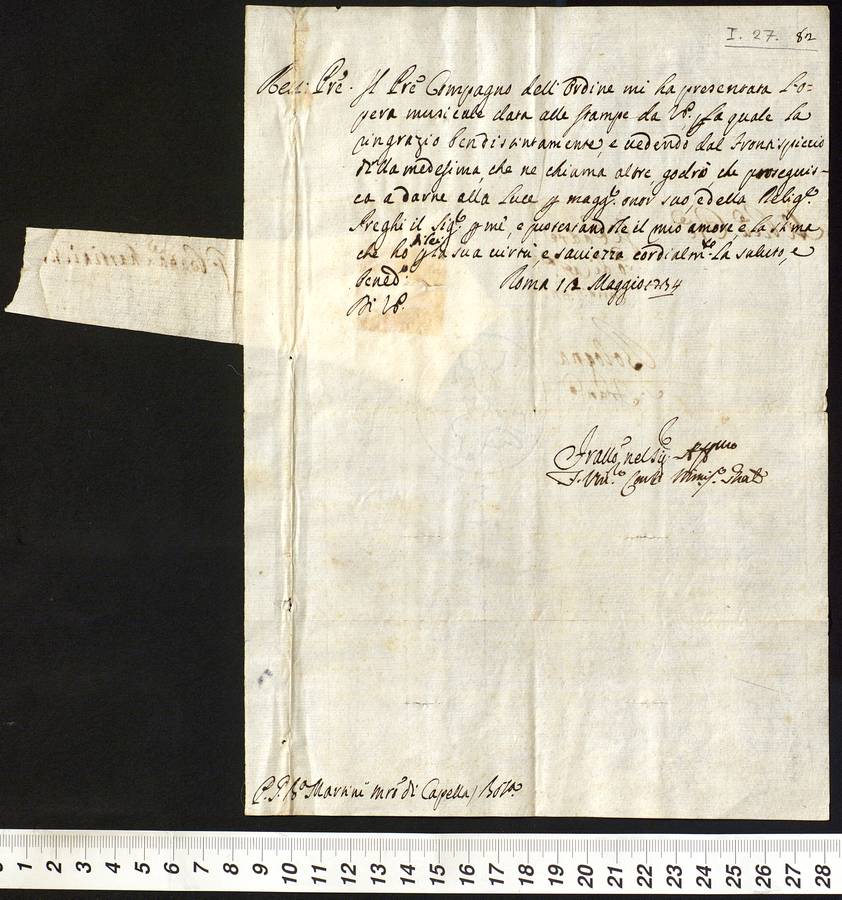 I. 27. 82
Rev. Pre. Il Pre Compagno dell'Ordine mi ha presentata l'o=
pera musicale data alle stampe da VP., della quale la
ringrazio bendistintamente, e vedendo dal frontispiccio
della medesima, che ne chiama altre, godrò che proseguis-
ca a darne alla Luce p magg. onor suo, e della Relig.e
Preghi il Sig.e p mè, e protestandole il mio amore e la stima
che hò della sua virtù, e saviezza cordialm.te La saluto, e
bened.o
Roma 12 Maggio 1734
Di VP.
Bologna
Aff.mo
P. G. Ba Martini mro di Capella / Bol.a
0 1 2 3 4 5 6 7 8 9 10 11 12 13 14 15 16 17 18 19 20 21 22 23 24 25 26 27 28